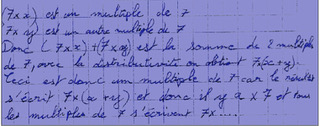 (7 x x) est un multiple de 7
7 x y est un autre multiple de 7
Donc (7 x x) + (7 x y) est la somme de 2 multiples
de 7, avec la distributivité on obtient 7x(x+y).
Ceci est donc un multiple de 7 car le résultat
s'écrit 7x(x+y) et donc il y a x 7 et tous
les multiples de 7 s'écrivent 7x....